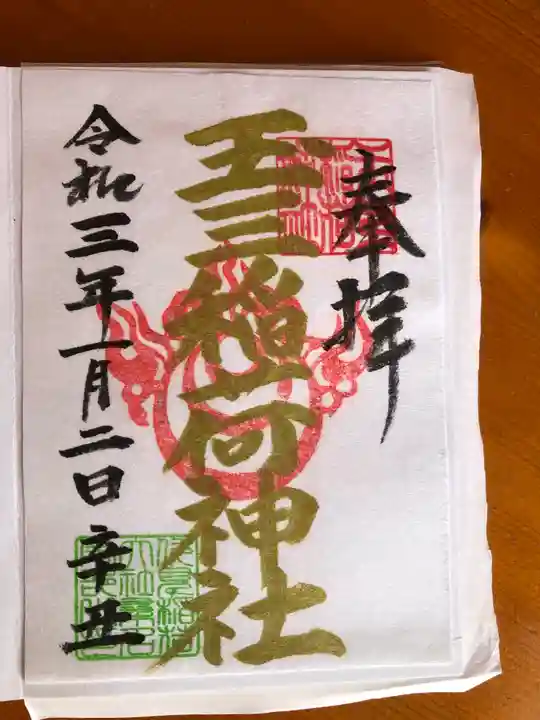 奉拝
玉三稲荷神社
令和三年一月二日辛丑